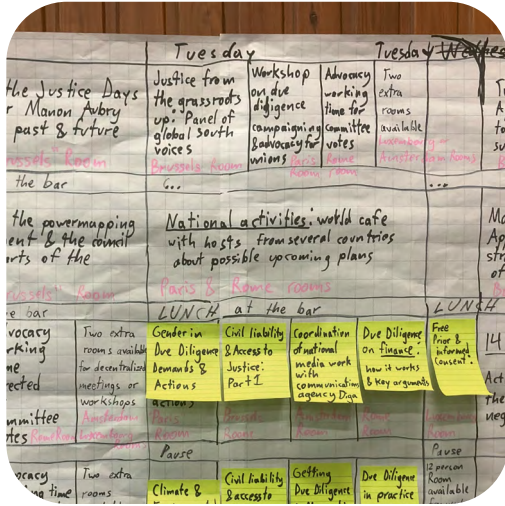 Tuesday
Tuesday
the Justice Days
Manon Aubry
past & future
Brussels" Room
Justice from
the grassroots
up: Panel of
global south
voices
Brussels Room
Workshop
on due
diligence
campaigning
& advocacy for
unions
Paris
Room
Advocacy
working
time for
committee
votes
Rome
room
Two
extra
rooms
available
Luxembourg or
Amsterdam Rooms
the bar
...
the powermapping
& the council
of the
Brussels" Room
National activities: world cafe
with hosts from several countries
about possible upcoming plans
Paris & Rome rooms
bar
LUNCH at the bar
LUNCH
Two extra
rooms available
for decentralized
meetings or
workshops
Amsterdam
Rome Room
Gender in
Due Diligence
Demands &
Actions
actions
Paris
Room
Civil liability
& Access to
Justice:
Part 1
Brussels
Room
Coordination
of national
media work
with
communication
agency Diga
Amsterdam
Room
Due Diligence
on finance:
how it works
& key arguments
Rome
Room
Free
Prior &
informed
Consent.
Luxembourg
Room
14
Pause
Pause
Two extra
rooms
Climate &
Civil liability
& access to
Getting
Due Diligence
Due Diligence
in practice
12 person
Room
available